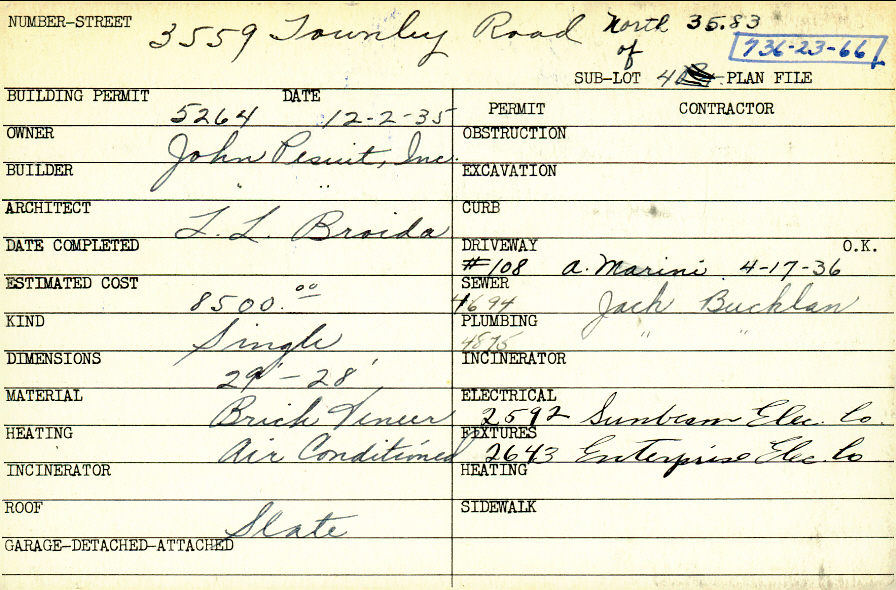 NUMBER-STREET 3559 Townley Road North 35.83
of 736-23-66
SUB-LOT PLAN FILE
BUILDING PERMIT 5264 DATE 12-2-35
OWNER John Pesuit, Inc.
BUILDER " "
ARCHITECT L. L. Broida
DATE COMPLETED
ESTIMATED COST 8500.00
KIND Single
DIMENSIONS 29' - 28'
MATERIAL Brick Veneer
HEATING Air Conditioned
INCINERATOR
ROOF Slate
GARAGE-DETACHED-ATTACHED
PERMIT CONTRACTOR
OBSTRUCTION
EXCAVATION
CURB
DRIVEWAY O.K.
#108 A. Marini 4-17-36
SEWER
4694 Jack Bucklan
PLUMBING
4875 " "
INCINERATOR
ELECTRICAL
2592 Sunbeam Elec. Co.
FIXTURES
2643 Enterprise Elec. Co
HEATING
SIDEWALK